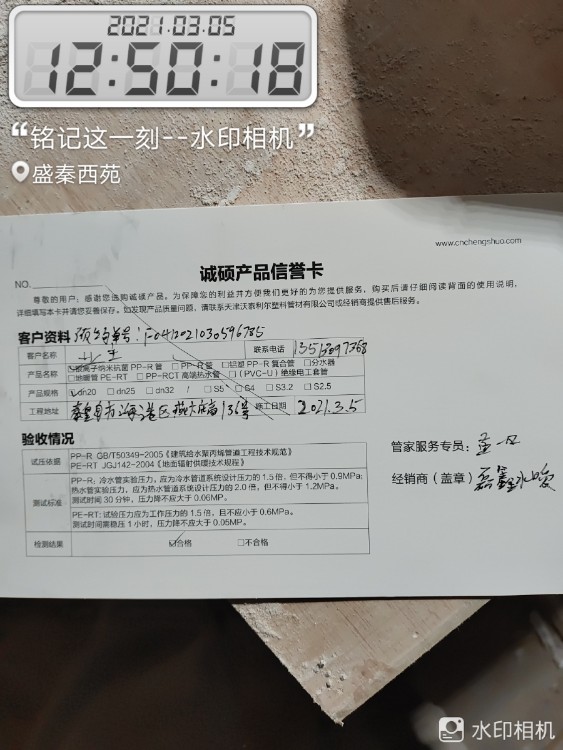 2021.03.05
12:50:18
“铭记这一刻--水印相机”
盛秦西苑
www.cnchengshuo.com
诚硕产品信誉卡
NO.
尊敬的用户：感谢您选购诚硕产品。为保障您的利益并方便我们更好的为您提供服务，购买后请仔细阅读背面的使用说明，
详细填写本卡并请您妥善保存。如发现产品质量问题，请联系天津沃泰利尔塑料管材有限公司或经销商提供售后服务。
客户资料 预约单号：F0412021030596785
客户名称 联系电话 13513097368
产品名称 ☑银离子纳米抗菌PP-R管 □PP-R管 □铝塑PP-R复合管 □分水器
□地暖管PE-RT □PP-RCT高端热水管 □(PVC-U)绝缘电工套管
产品规格 ☑dn20 □dn25 □dn32 □S5 □S4 □S3.2 □S2.5
工程地址 秦皇岛市海港区 136号 施工日期 2021.3.5
验收情况
试压依据 PP-R GB/T50349-2005《建筑给水聚丙烯管道工程技术规范》
PE-RT JGJ142-2004《地面辐射供暖技术规程》
测试标准 PP-R：冷水管实验压力，应为冷水管道系统设计压力的1.5倍，但不得小于0.9MPa；
热水管实验压力，应为热水管道系统设计压力的2.0倍，但不得小于1.2MPa。
测试时间30分钟，压力降不应大于0.06MP。
PE-RT：试验压力应为工作压力的1.5倍，且不应小于0.6MPa。
测试时间需稳压1小时，压力降不应大于0.05MP。
检测结果 ☑合格 □不合格
管家服务专员：
经销商（盖章）
水印相机